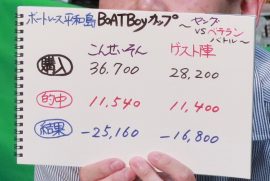 ボートレース平和島 BOATBoyカップ
～ヤング VS ベテラン バトル～
こんせいそん ゲスト陣
購入 36.700 28,200
的中 11,540 11,400
結果 -25,160 -16,800